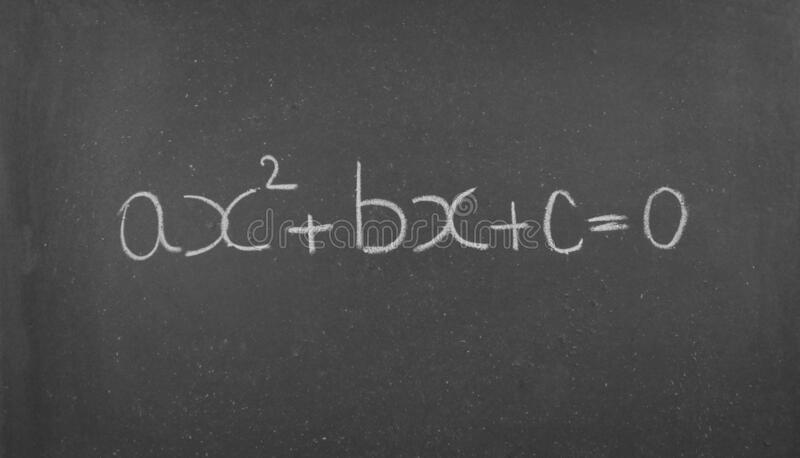 ax²+bx+c=0
dreamstime